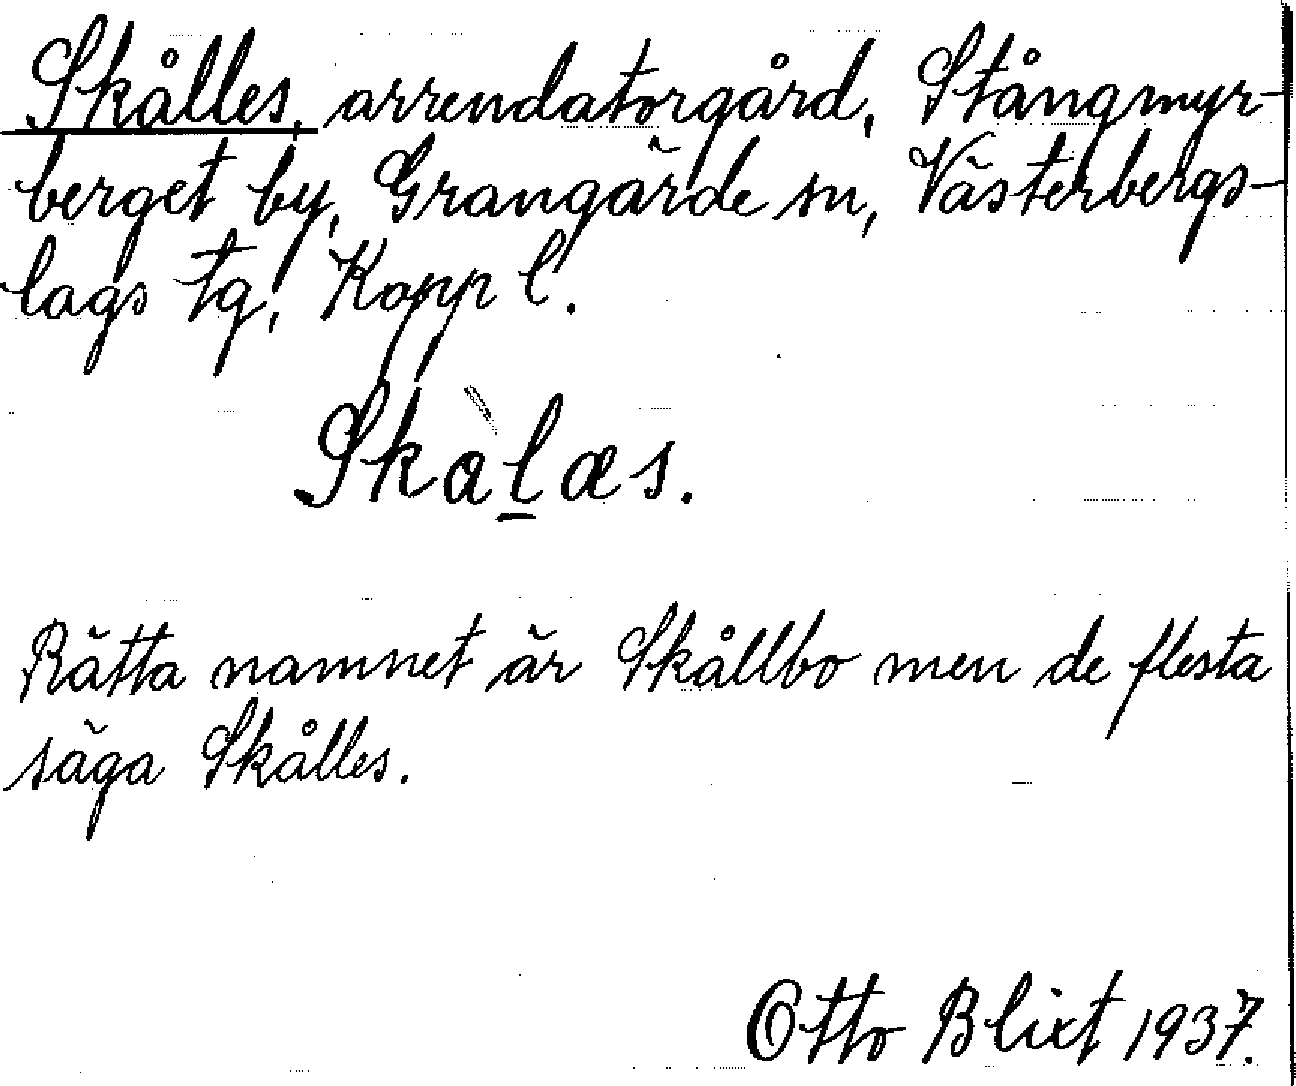 Skålles, arrendatorgård, Stångmyr-
berget by, Grangärde sn, Västerbergs-
lags tg, Kopp l.
Skàl̲æs.
Rätta namnet är Skållbo men de flesta
säga Skålles.
Otto Blixt 1937.